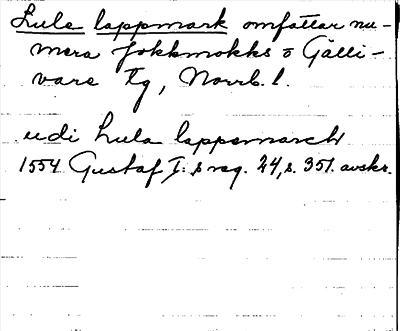 Lule lappmark omfattar nu-
mera Jokkmokks o Gälli-
vare tg, Norrb. l.
udi Lula lappemarch
1554 Gustaf I:s reg. 24, s. 351. avskr.